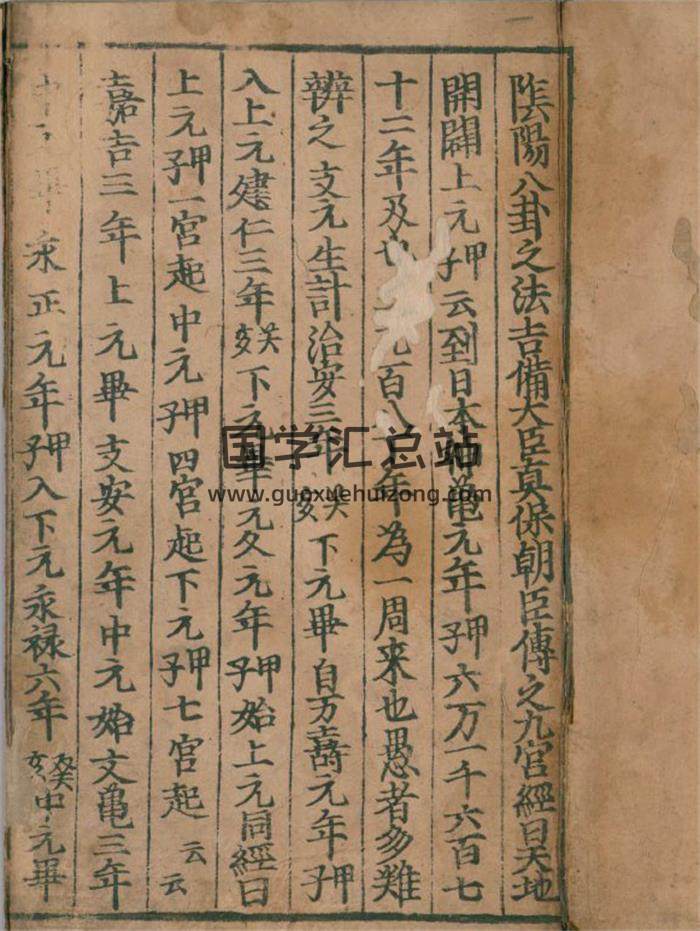 陰陽八卦之法吉備大臣真保朝臣傳之九宮經曰天地
開闢上元甲子云到日本神亀元年甲子六万一千六百七
十二年及也百八十年為一周来也愚者多難
辨之支元生計治安三年癸亥下元畢自万壽元年甲子
入上元建仁三年癸亥下元畢元久元年甲子始上元同經曰
上元甲子一宮起中元甲子四宮起下元甲子七宮起云云
嘉吉三年上元畢支安元年中元始文亀三年
中元畢永正元年甲子入下元永禄六年癸亥中元畢
国学汇总站
www.guoxuehuizong.com